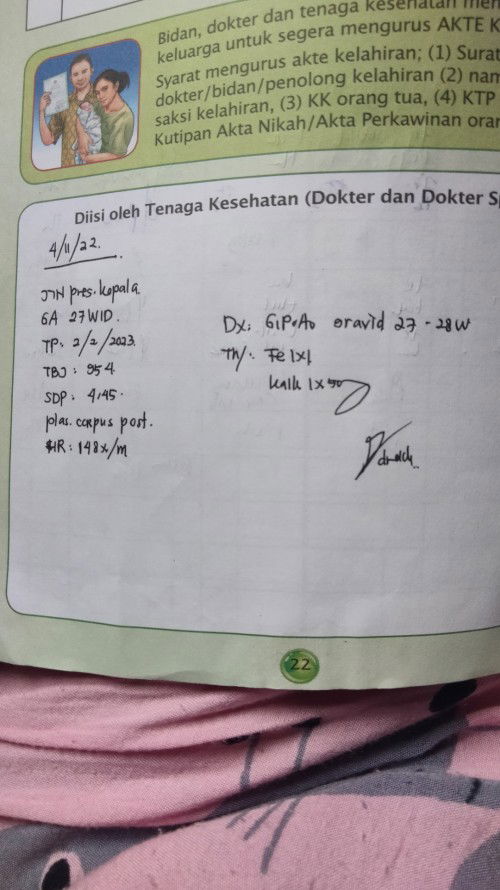 Bidan, dokter dan tenaga kesehatan men
keluarga untuk segera mengurus AKTE K
Syarat mengurus akte kelahiran; (1) Surat
dokter/bidan/penolong kelahiran (2) nam
saksi kelahiran, (3) KK orang tua, (4) KTP
Kutipan Akta Nikah/Akta Perkawinan oran
Diisi oleh Tenaga Kesehatan (Dokter dan Dokter Sp
4/11/22.
JTH pres. kepala
GA 27W1D.
TP. 2/2/2023.
TBJ : 954
SDP : 4,45.
plas. corpus post.
DX: G1P0A0 gravid 27-28W
Th/: Fe 1x1
Kalk 1x500
: 148x/m
22